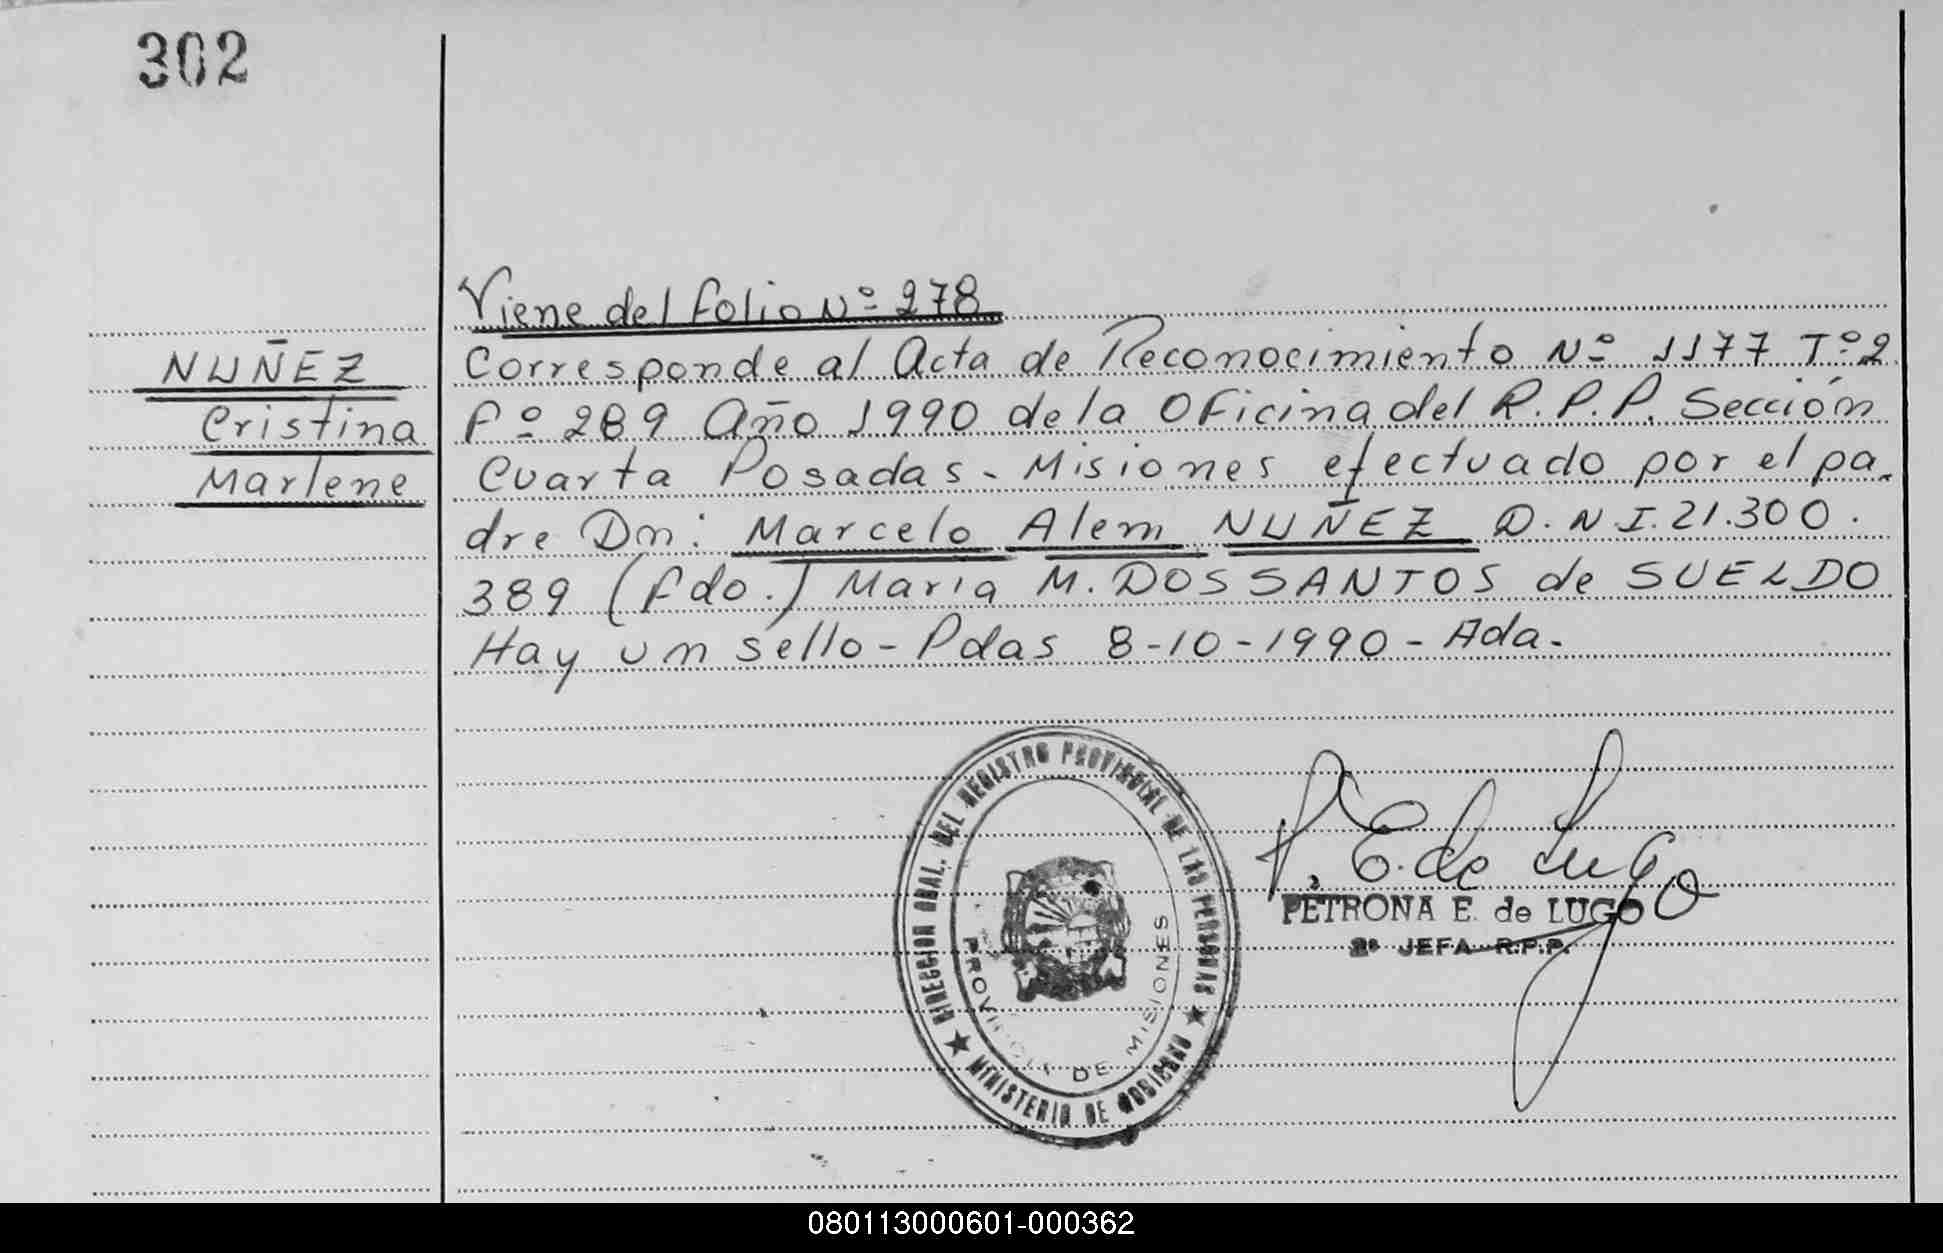 302
Viene del folio Nº 278
NUÑEZ
Cristina
Marlene
Corresponde al Acta de Reconocimiento Nº 1177 Tº 2
Fº 289 Año 1990 de la Oficina del R.P.P. Sección
Cuarta Posadas - Misiones efectuado por el pa-
dre Dn: Marcelo Alem NUÑEZ D.N.I. 21.300.
389 (fdo.) Maria M. DOS SANTOS de SUELDO
Hay un sello - Pdas 8-10-1990 - Ada.
DIRECCION GRAL. DEL REGISTRO PROVINCIAL DE LAS PERSONAS
★ MINISTERIO DE GOBIERNO ★
PROVINCIA DE MISIONES
P. E. de Lugo
PETRONA E. de LUGO
2ª JEFA R.P.P.
080113000601-000362